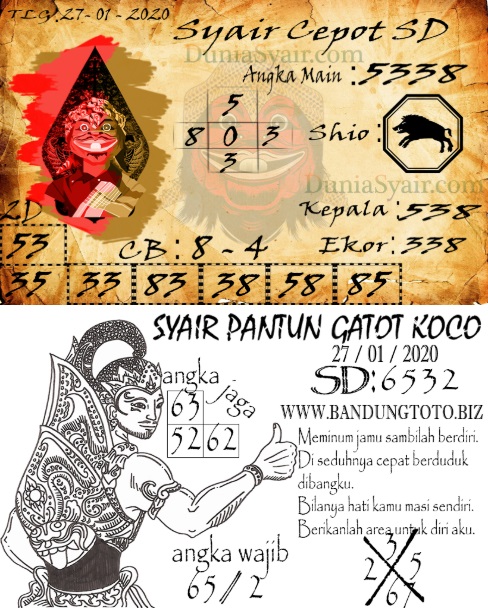 TLG:27-01-2020
Syair Cepot SD
DuniaSyair.com
Angka Main : 5338
5
8 0 3
3
Shio :
DuniaSyair.com
Kepala : 538
2D
53
CB : 8 - 4
Ekor : 338
35 33 83 38 58 85
SYAIR PANTUN GATOT KOCO
27 / 01 / 2020
SD:6532
angka jaga
63
52 62
WWW.BANDUNGTOTO.BIZ
Meminum jamu sambilah berdiri.
Di seduhnya cepat berduduk
dibangku.
Bilanya hati kamu masi sendiri.
Berikanlah area untuk diri aku.
angka wajib
65 / 2
3
2 5
6